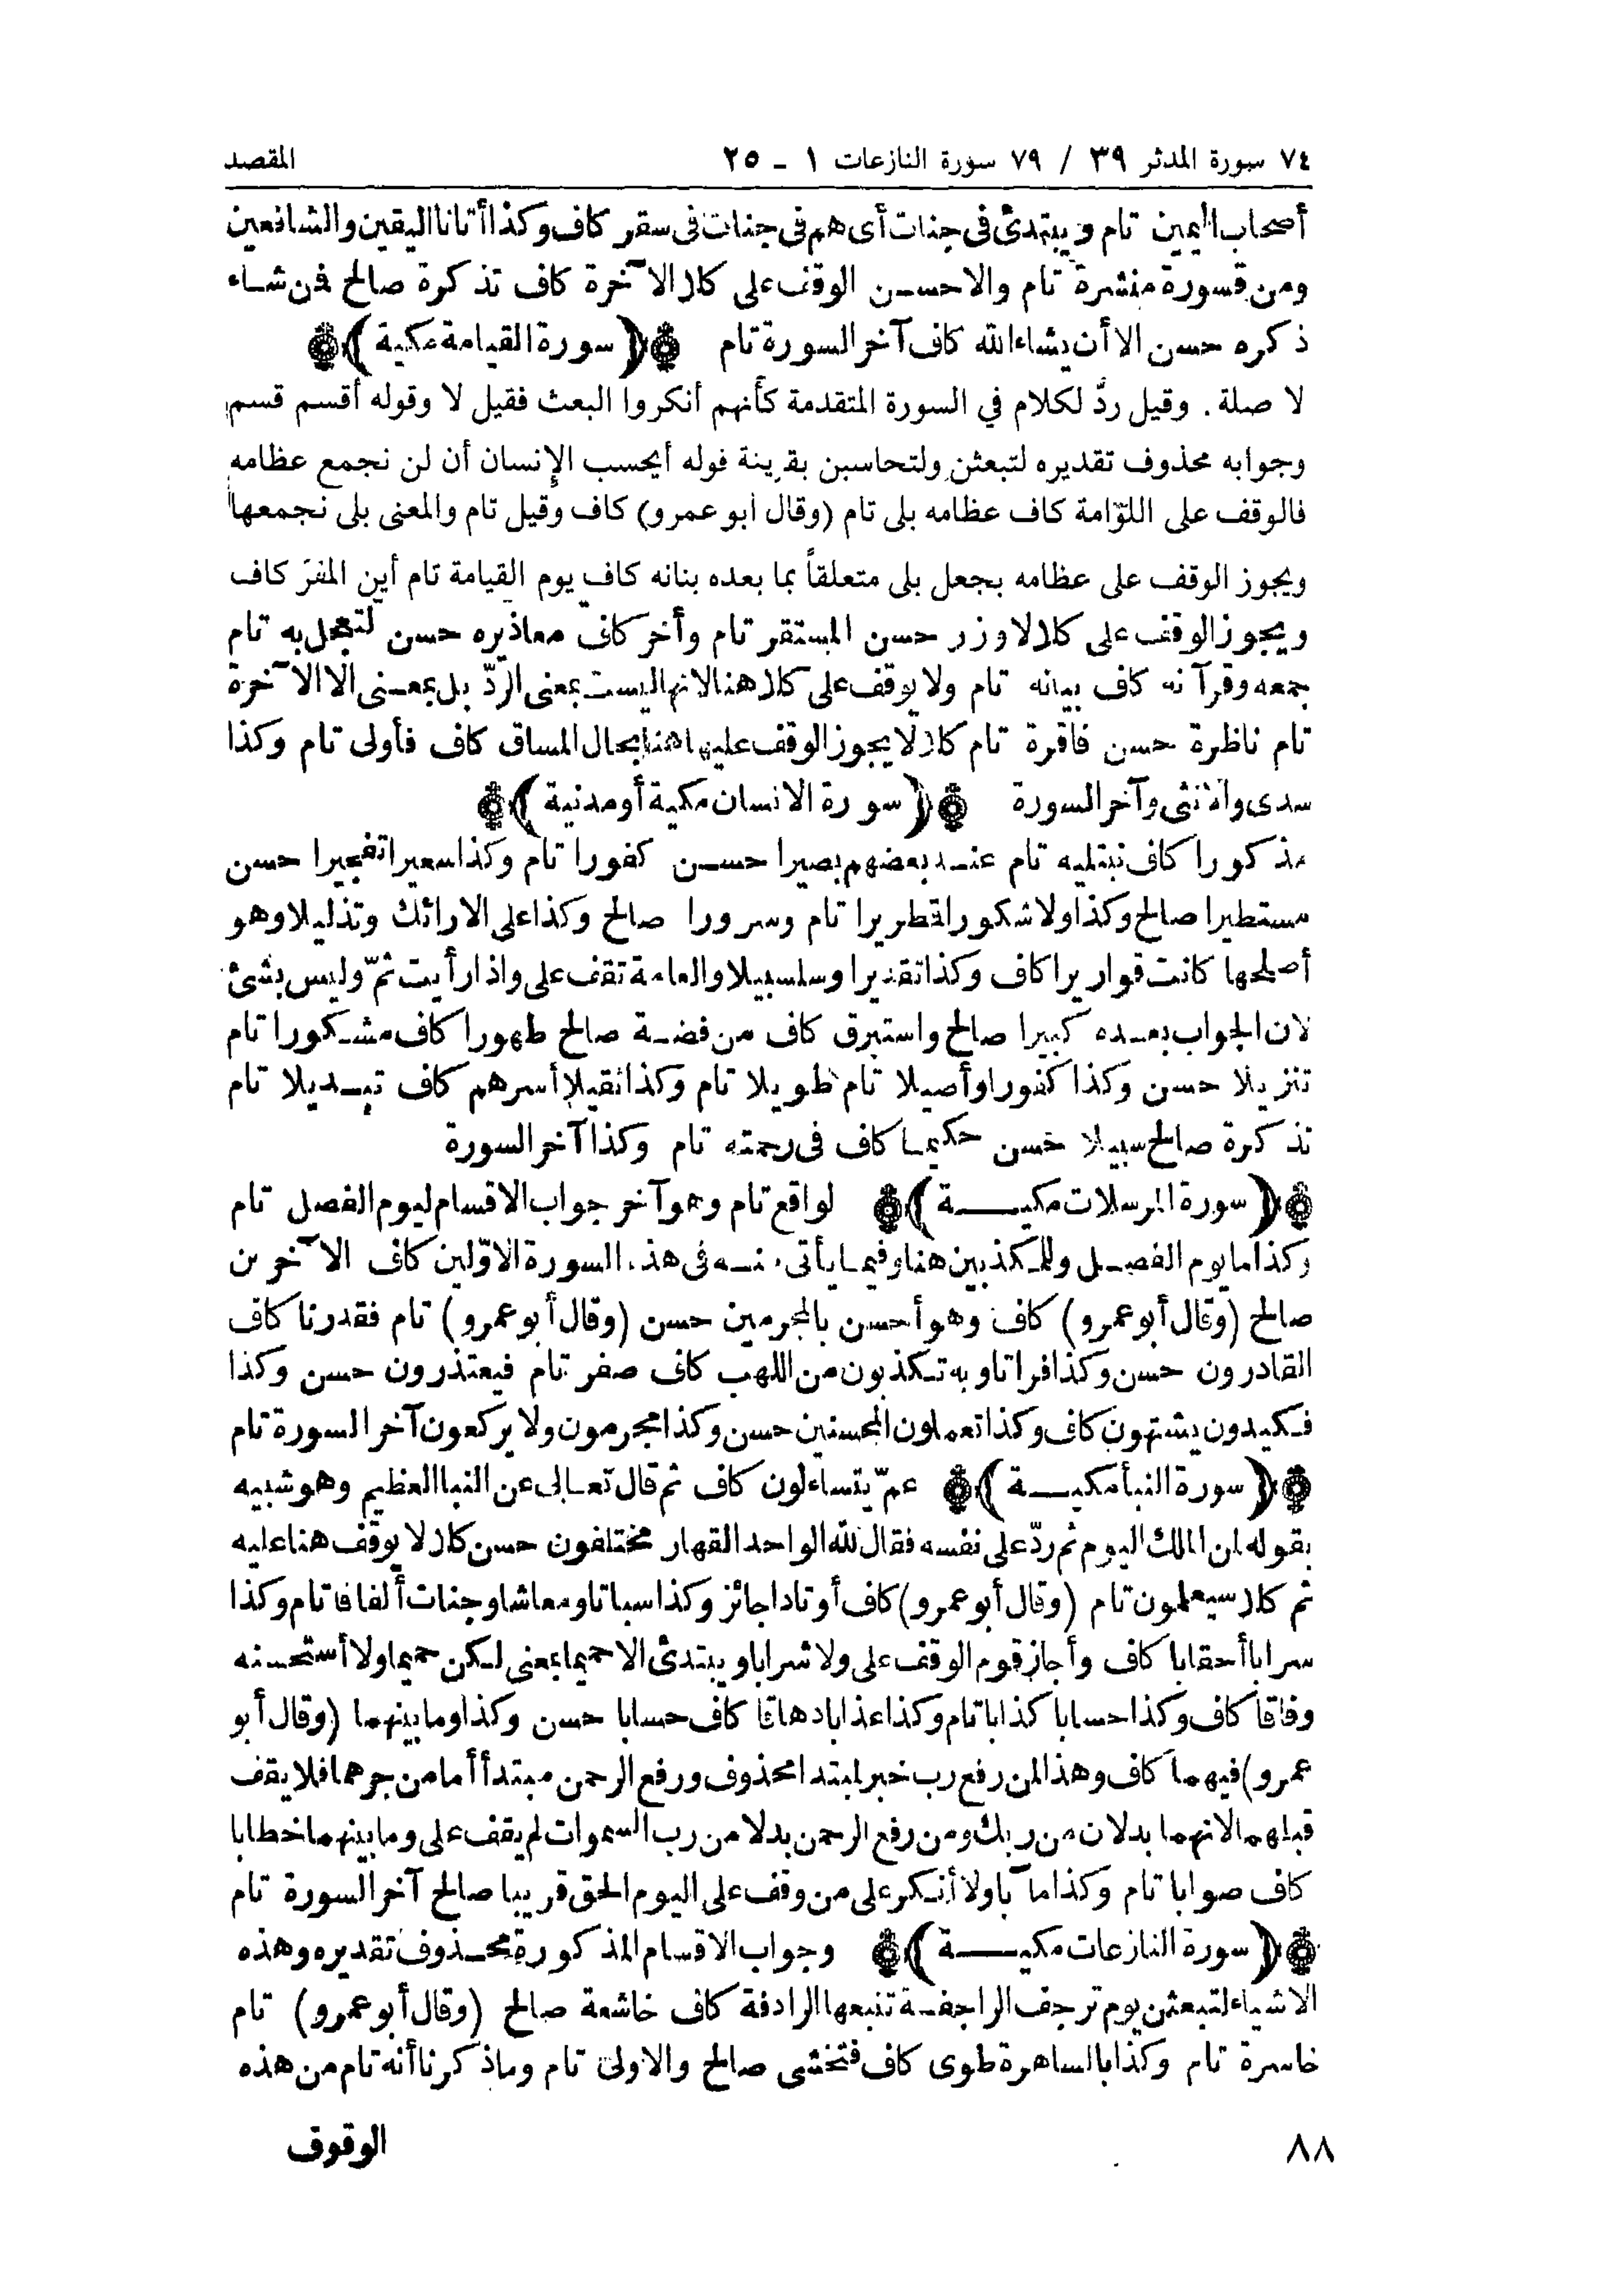 ٧٤ سورة المدثر ٣٩ / ٧٩ سورة النازعات ١ - ٢٥ المقصد
أصحاب اليمين تام ويبتدئ فى جنات أى هم فى جنات فى سقر كاف وكذا أتانا اليقين والشافعين
ومن قسورة منشرة تام والاحسن الوقف على كلا الآخرة كاف تذكرة صالح فمن شاء
ذكره حسن الا أن يشاء الله كاف آخر السورة تام ﴿سورة القيامة مكية﴾
لا صلة. وقيل ردّ لكلام في السورة المتقدمة كأنهم أنكروا البعث فقيل لا وقوله أقسم قسم
وجوابه محذوف تقديره لتبعثن ولتحاسبن بقرينة قوله أيحسب الإنسان أن لن نجمع عظامه
فالوقف على اللوّامة كاف عظامه بلى تام (وقال أبو عمرو) كاف وقيل تام والمعنى بلى نجمعها
ويجوز الوقف على عظامه بجعل بلى متعلقاً بما بعده بنانه كاف يوم القيامة تام أين المفرّ كاف
ويجوز الوقف على كلا لا وزر حسن المستقر تام وأخر كاف معاذيره حسن لتعجل به تام
جمعه وقرآنه كاف بيانه تام ولا يوقف على كلا هنا لانها ليست بمعنى الردّ بل بمعنى الا الآخرة
تام ناظرة حسن فاقرة تام كلا لا يجوز الوقف عليها هنا بحال المساق كاف فأولى تام وكذا
سدى والانثى وآخر السورة ﴿سورة الانسان مكية أو مدنية﴾
مذكورا كاف نبتليه تام عند بعضهم بصيرا حسن كفورا تام وكذا سعيرا تفجيرا حسن
مستطيرا صالح وكذا ولا شكورا قمطريرا تام وسرورا صالح وكذا على الارائك وتذليلا وهو
أصلحها كانت قواريرا كاف وكذا تقديرا وسلسبيلا والعامة تقف على واذا رأيت ثمّ وليس بشئ
لان الجواب بعده كبيرا صالح واستبرق كاف من فضة صالح طهورا كاف مشكورا تام
تنزيلا حسن وكذا كفورا وأصيلا تام طويلا تام وكذا ثقيلا أسرهم كاف تبديلا تام
تذكرة صالح سبيلا حسن حكيما كاف فى رحمته تام وكذا آخر السورة
﴿سورة المرسلات مكية﴾ لواقع تام وهو آخر جواب الاقسام ليوم الفصل تام
وكذا ما يوم الفصل وللمكذبين هنا وفيما يأتى منه فى هذه السورة الاوّلين كاف الآخرين
صالح (وقال أبو عمرو) كاف وهو أحسن بالمجرمين حسن (وقال أبو عمرو) تام فقدرنا كاف
القادرون حسن وكذا فراتا وبه تكذبون من اللهب كاف صفر تام فيعتذرون حسن وكذا
فكيدون يشتهون كاف وكذا تعملون المحسنين حسن وكذا مجرمون ولا يركعون آخر السورة تام
﴿سورة النبأ مكية﴾ عمّ يتساءلون كاف ثم قال تعالى عن النبا العظيم وهو شبيه
بقوله لمن الملك اليوم ثم ردّ على نفسه فقال لله الواحد القهار مختلفون حسن كلا لا يوقف هنا عليه
ثم كلا سيعلمون تام (وقال أبو عمرو) كاف أوتادا جائز وكذا سباتا ومعاشا وجنات ألفافا تام وكذا
سرابا أحقابا كاف وأجاز قوم الوقف على ولا شرابا ويبتدئ الا حميما بمعنى لكن حميما ولا أستحسنه
وفاقا كاف وكذا حسابا كذابا تام وكذا عذابا دهاقا كاف حسابا حسن وكذا وما بينهما (وقال أبو
عمرو) فيهما كاف وهذا لمن رفع رب خبر لمبتدا محذوف ورفع الرحمن مبتدأ أما من جرهما فلا يقف
قبلهما لانهما بدلان من ربك ومن رفع الرحمن بدلا من رب السموات لم يقف على وما بينهما خطابا
كاف صوابا تام وكذا مآبا ولا أنكر على من وقف على اليوم الحق قريبا صالح آخر السورة تام
﴿سورة النازعات مكية﴾ وجواب الاقسام المذكورة محذوف تقديره وهذه
الاشياء لتبعثن يوم ترجف الراجفة تتبعها الرادفة كاف خاشعة صالح (وقال أبو عمرو) تام
خاسرة تام وكذا بالساهرة طوى كاف فتخشى صالح والاولى تام وما ذكرنا أنه تام من هذه
الوقوف
٨٨